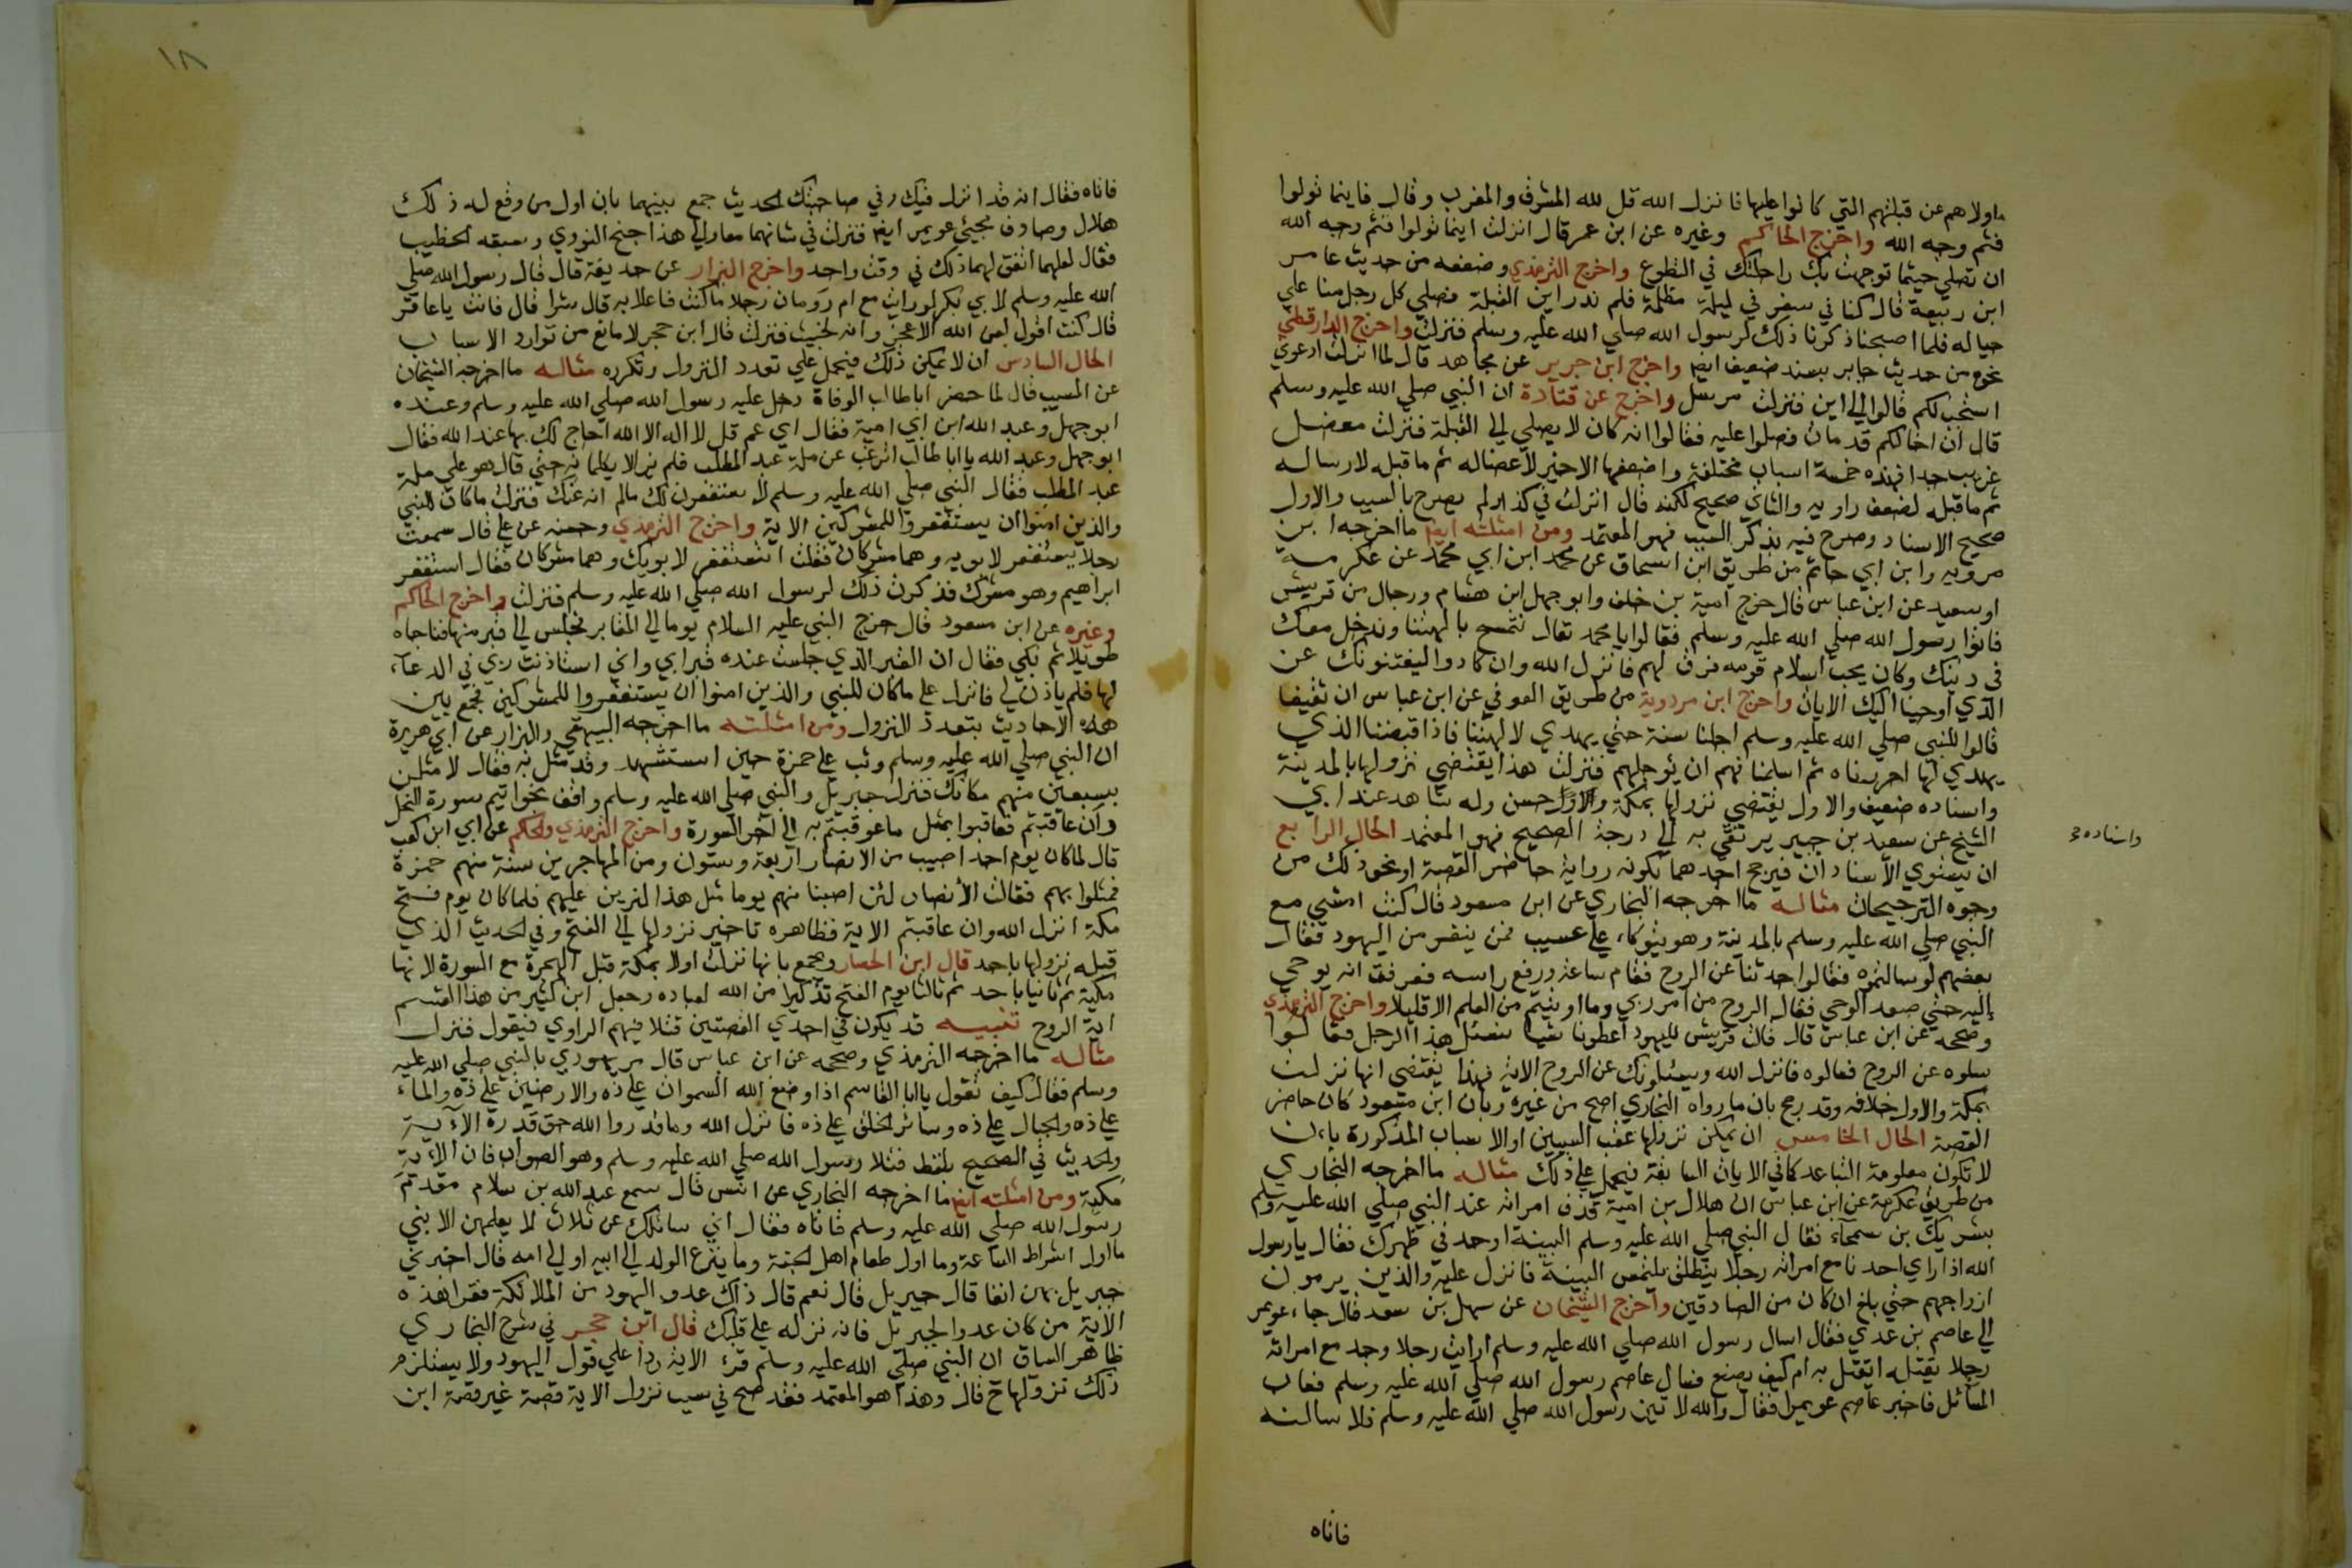 ماولاهم عن قبلتهم التي كانوا عليها فانزل الله قل لله المشرق والمغرب وقال فاينما تولوا
فثم وجه الله واخرج الحاكم وغيره عن ابن عمر قال انزلت اينما تولوا فثم وجه الله
ان تصلي حيثما توجهت بك راحلتك في التطوع واخرج الترمذي وضعفه من حديث عامر
ابن ربيعة قال كنا في سفر في ليلة مظلمة فلم ندر اين القبلة فصلي كل رجل منا علي
حياله فلما اصبحنا ذكرنا ذلك لرسول الله صلي الله عليه وسلم فنزلت واخرج الدارقطني
نحوه من حديث جابر بسند ضعيف ايضا واخرج ابن جرير عن مجاهد قال لما انزلت ادعوني
استجب لكم قالوا الي اين فنزلت مرسل واخرج عن قتادة ان النبي صلي الله عليه وسلم
قال ان اخا لكم قد مات فصلوا عليه فقالوا انه كان لا يصلي الي القبلة فنزلت معضل
غريب جدا فهذه خمسة اسباب مختلفة واضعفها الاخير لاعضاله ثم ما قبله لارساله
ثم ما قبله لضعف راويه والثاني صحيح لكنه قال انزلت في كذا ولم يصرح بالسبب والاول
صحيح الاسناد وصرح فيه بذكر السبب فهو المعتمد ومن امثلته ايضا ما اخرجه ابن
مردويه وابن ابي حاتم من طريق ابن اسحاق عن محمد ابن ابي محمد عن عكرمة
او سعيد عن ابن عباس قال خرج امية بن خلف وابو جهل ابن هشام ورجال من قريش
فاتوا رسول الله صلي الله عليه وسلم فقالوا يا محمد تعال تتمسح بالهتنا وندخل معك
في دينك وكان يحب اسلام قومه فرق لهم فانزل الله وان كادوا ليفتنونك عن
الذي اوحينا اليك الايات واخرج ابن مردوية من طريق العوفي عن ابن عباس ان ثقيفا
قالوا للنبي صلي الله عليه وسلم اجلنا سنة حتي يهدي لالهتنا فاذا قبضنا الذي
يهدي لها احرزناه ثم اسلمنا فهم ان يوجلهم فنزلت هذا يقتضي نزولها بالمدينة
واسناده ضعيف والاول يقتضي نزولها بمكة والاول حسن وله شاهد عند ابي
واسناده
الشيخ عن سعيد بن جبير يرتقي به الي درجة الصحيح فهو المعتمد الحال الرابع
ان يستوي الاسنادان فيرجح احدهما بكونه رواية حاضر القصة او نحو ذلك من
وجوه الترجيحات مثاله ما اخرجه البخاري عن ابن مسعود قال كنت امشي مع
النبي صلي الله عليه وسلم بالمدينة وهو يتوكاء علي عسيب فمر بنفر من اليهود فقال
بعضهم لو سالتموه فقالوا حدثنا عن الروح فقام ساعة ورفع راسه فعرفت انه يوحي
اليه حتي صعد الوحي فقال الروح من امر ربي وما اوتيتم من العلم الا قليلا واخرج الترمذي
وصححه عن ابن عباس قال قالت قريش لليهود اعطونا شيا نسئل هذا الرجل فقالوا
سلوه عن الروح فسالوه فانزل الله ويسئلونك عن الروح الاية فهذا يقتضي انها نزلت
بمكة والاول خلافه وقد رجح بان ما رواه البخاري اصح من غيره وبان ابن مسعود كان حاضر
القصة الحال الخامس ان يمكن نزولها عقب السببين او الاسباب المذكورة بان
لا تكون معلومة التباعد كما في الايات السابقة فيحمل علي ذلك مثاله ما اخرجه البخاري
من طريق عكرمة عن ابن عباس ان هلال بن امية قذف امراته عند النبي صلي الله عليه وسلم
بشريك بن سحماء فقال النبي صلي الله عليه وسلم البينة او حد في ظهرك فقال يا رسول
الله اذا راي احدنا مع امراته رجلا ينطلق يلتمس البينة فانزل عليه والذين يرمون
ازواجهم حتي بلغ ان كان من الصادقين واخرج الشيخان عن سهل بن سعد قال جاء عويمر
الي عاصم بن عدي فقال اسال رسول الله صلي الله عليه وسلم ارايت رجلا وجد مع امراته
رجلا يقتله ايقتل به ام كيف يصنع فسال عاصم رسول الله صلي الله عليه وسلم فعاب
المسائل فاخبر عاصم عويمرا فقال والله لاتين رسول الله صلي الله عليه وسلم فلاسالنه
فاتاه
١٨
فاتاه فقال انه قد انزل فيك وفي صاحبتك الحديث جمع بينهما بان اول من وقع له ذلك
هلال وصادف مجيئ عويمر ايضا فنزلت في شانهما معا والي هذا جنح النووي وسبقه الخطيب
فقال لعلهما اتفق لهما ذلك في وقت واحد واخرج البزار عن حذيفة قال قال رسول الله صلي
الله عليه وسلم لابي بكر لو رايت مع ام رومان رجلا ما كنت فاعلا به قال شرا قال فانت يا عمر
قال كنت اقول لعن الله الاعجز وانه لخبيث فنزلت قال ابن حجر لا مانع من توارد الاسباب
الحال السادس ان لا يمكن ذلك فيحمل علي تعدد النزول وتكرره مثاله ما اخرجه الشيخان
عن المسيب قال لما حضر ابا طالب الوفاة دخل عليه رسول الله صلي الله عليه وسلم وعنده
ابو جهل وعبد الله ابن ابي امية فقال اي عم قل لا اله الا الله احاج لك بها عند الله فقال
ابو جهل وعبد الله يا ابا طالب اترغب عن ملة عبد المطلب فلم يزالا يكلمانه حتي قال هو علي ملة
عبد المطلب فقال النبي صلي الله عليه وسلم لاستغفرن لك مالم انه عنك فنزلت ما كان للنبي
والذين امنوا ان يستغفروا للمشركين الاية واخرج الترمذي وحسنه عن علي قال سمعت
رجلا يستغفر لابويه وهما مشركان فقلت اتستغفر لابويك وهما مشركان فقال استغفر
ابراهيم وهو مشرك فذكرت ذلك لرسول الله صلي الله عليه وسلم فنزلت واخرج الحاكم
وغيره عن ابن مسعود قال خرج النبي عليه السلام يوما الي المقابر فجلس الي قبر منها فناجاه
طويلا ثم بكي فقال ان القبر الذي جلست عنده قبر امي واني استاذنت ربي في الدعاء
لها فلم ياذن لي فانزل علي ما كان للنبي والذين امنوا ان يستغفروا للمشركين فجمع بين
هذه الاحاديث بتعدد النزول ومن امثلته ما اخرجه البيهقي والبزار عن ابي هريرة
ان النبي صلي الله عليه وسلم وقف علي حمزة حين استشهد وقد مثل به فقال لامثلن
بسبعين منهم مكانك فنزل جبريل والنبي صلي الله عليه وسلم واقف بخواتيم سورة النحل
وان عاقبتم فعاقبوا بمثل ما عوقبتم به الي اخر السورة واخرج الترمذي والحاكم عن ابي ابن كعب
قال لما كان يوم احد اصيب من الانصار اربعة وستون ومن المهاجرين ستة منهم حمزة
فمثلوا بهم فقالت الانصار لئن اصبنا منهم يوما مثل هذا لنربين عليهم فلما كان يوم فتح
مكة انزل الله وان عاقبتم الاية فظاهره تاخير نزولها الي الفتح وفي الحديث الذي
قبله نزولها باحد قال ابن الحصار ويجمع بانها نزلت اولا بمكة قبل الهجرة مع السورة لانها
مكية ثم ثانيا باحد ثم ثالثا يوم الفتح تذكيرا من الله لعباده وجعل ابن كثير من هذا القسم
اية الروح تنبيه قد يكون في احدي القصتين فتلا فيهم الراوي فيقول فنزل
مثاله ما اخرجه الترمذي وصححه عن ابن عباس قال مر يهودي بالنبي صلي الله عليه
وسلم فقال كيف تقول يا ابا القاسم اذا وضع الله السموات علي ذه والارضين علي ذه والماء
علي ذه والجبال علي ذه وسائر الخلق علي ذه فانزل الله وما قدروا الله حق قدره الاية
والحديث في الصحيح بلفظ فتلا رسول الله صلي الله عليه وسلم وهو الصواب فان الاية
مكية ومن امثلته ايضا ما اخرجه البخاري عن انس قال سمع عبد الله بن سلام مقدم
رسول الله صلي الله عليه وسلم فاتاه فقال اني سائلك عن ثلاث لا يعلمهن الا نبي
ما اول اشراط الساعة وما اول طعام اهل الجنة وما ينزع الولد الي ابيه او الي امه قال اخبرني
جبريل بهن انفا قال جبريل قال نعم قال ذاك عدو اليهود من الملائكة فقرا هذه
الاية من كان عدوا لجبريل فانه نزله علي قلبك قال ابن حجر في شرح البخاري
ظاهر السياق ان النبي صلي الله عليه وسلم قرء الاية ردا علي قول اليهود ولا يستلزم
ذلك نزولها ح قال وهذا هو المعتمد فقد صح في سبب نزول الاية قصة غير قصة ابن